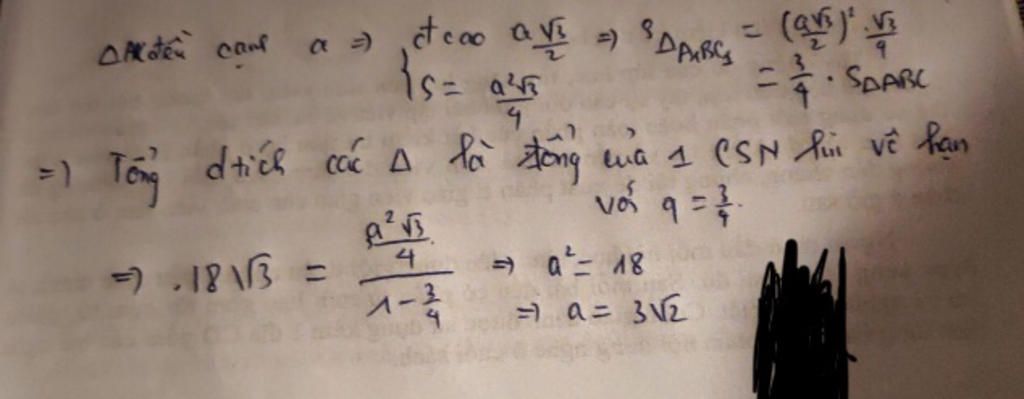 ΔABC đều cạnh a => { đ cao a√3/2 => SΔA₁B₁C₁ = (a√3/2)² · √3/4
S = a²√3/4 = 3/4 · SΔABC
=> Tổng dtích các Δ là tổng của 1 CSN lùi vô hạn
với q = 3/4.
=> 18√3 = (a²√3/4)/(1 - 3/4) => a² = 18
=> a = 3√2